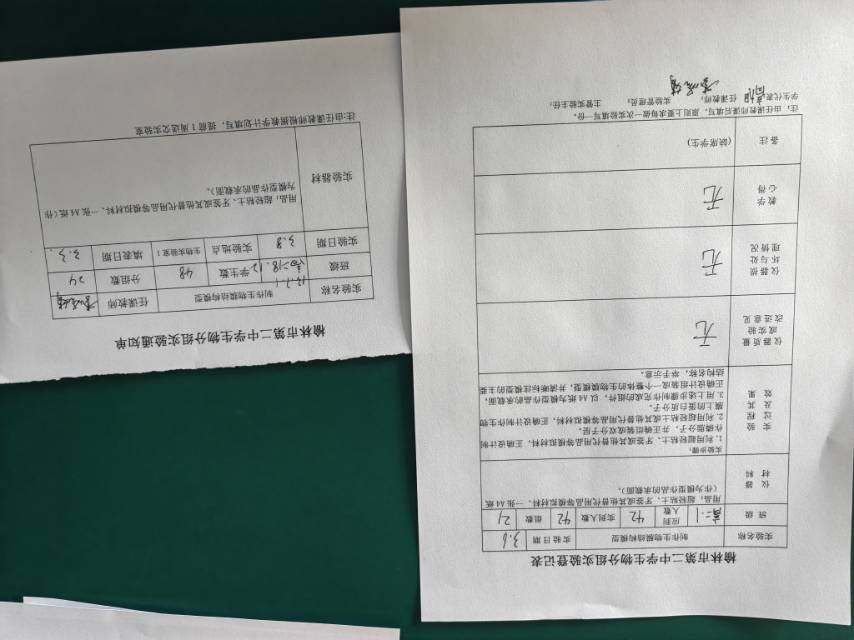 榆林市第二中学生物分组实验通知单
实验名称 制作生物膜结构模型 任课教师
班级 学生数 48 分组数 24
实验日期 3.8 实验地点 生物实验室1 填表日期 3.3.
实验器材
用品，超轻粘土、牙签或其他替代用品等模拟材料、一张A4纸（作
为模型作品的承载面）。
注:由任课教师根据教学计划填写，提前1周送交实验室
榆林市第二中学生物分组实验登记表
实验名称 制作生物膜结构模型 实验日期 3.6
班级 高二.1 应到人数 42 实到人数 42 组数 21
仪器材料
用品，超轻粘土、牙签或其他替代用品等模拟材料、一张A4纸
（作为模型作品的承载面）。
实验过程及其效果
实验步骤：
1.利用超轻粘土、牙签或其他替代用品等模拟材料，正确设计制
作磷脂分子，并正确组装成双分子层。
2.利用超轻粘土或其他替代用品等模拟材料，正确设计制作生物
膜上的蛋白质分子。
3.用上述步骤制作完成的组件，以A4纸为模型作品的承载面，
正确设计组装成一个整体的生物膜模型，并清晰标注模型的主要
结构名称，举手示意。
仪器质量或实验改进意见 无
仪器损坏与处理情况 无
教学心得 无
备注 （缺席学生）
注：由任课教师课后填写，原则上要求每做一次实验填写一份。
学生代表： 任课教师： 实验管理员： 主管实验主任：